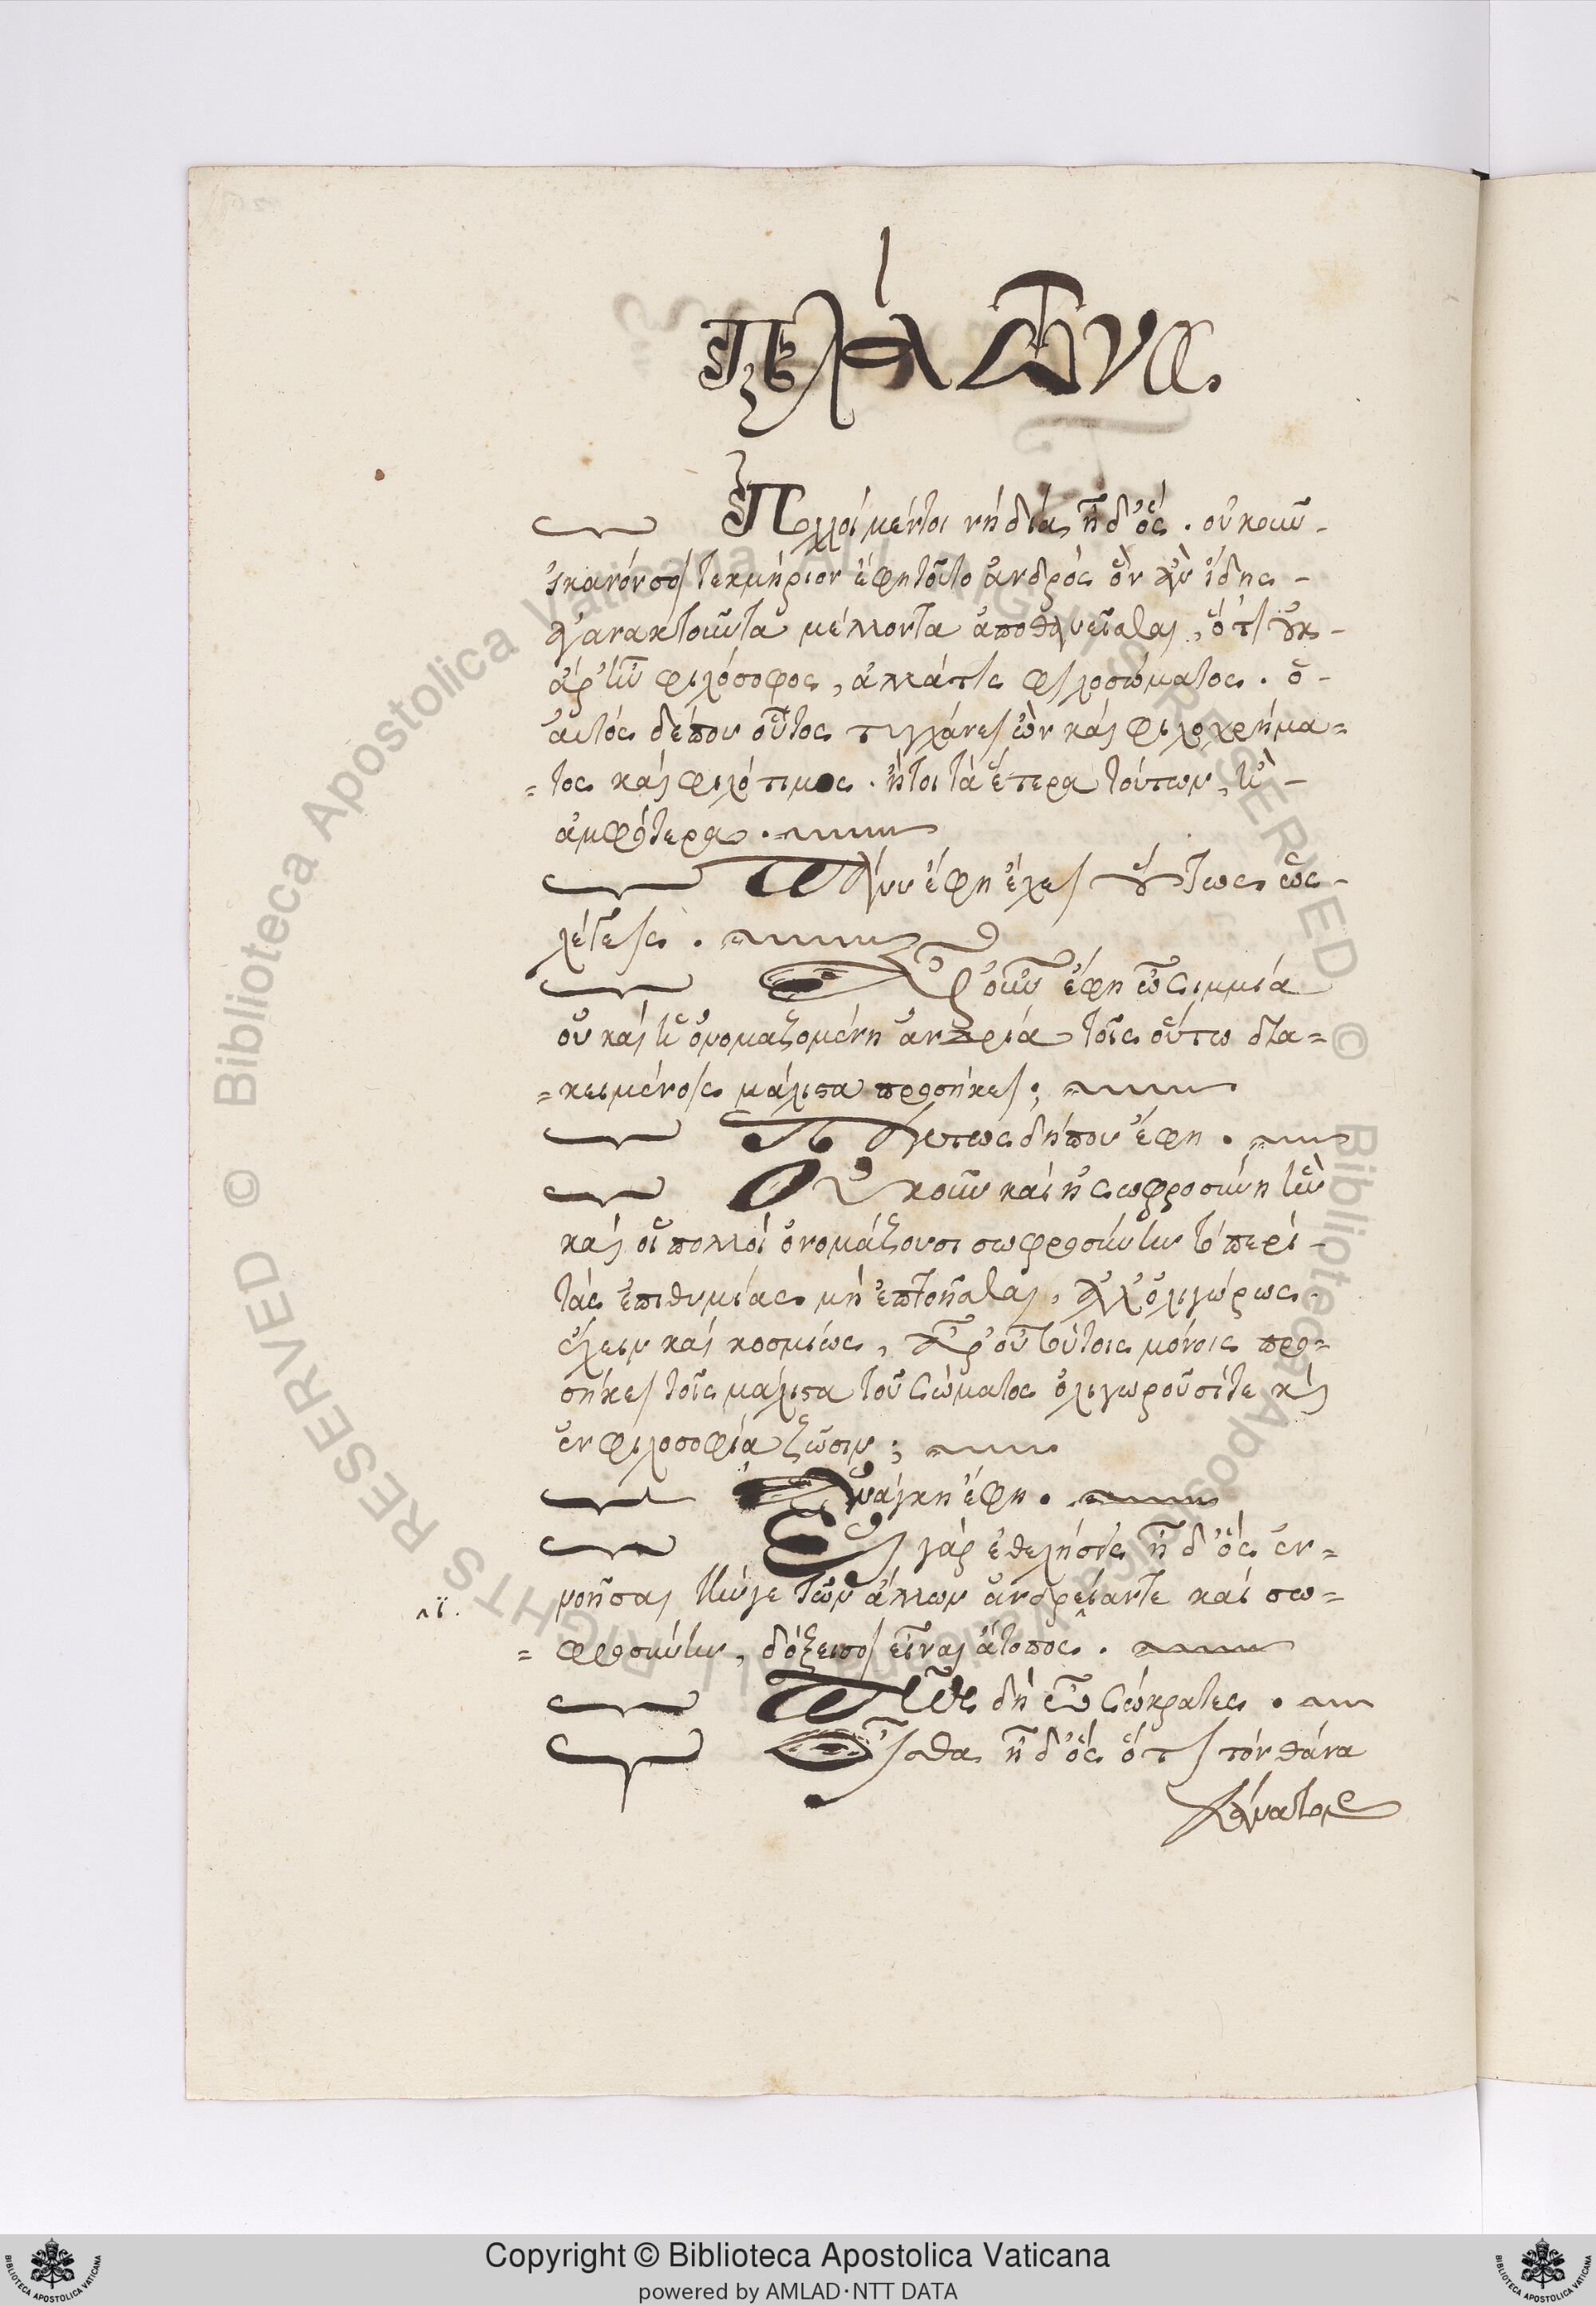 Πλάτωνος
Πολλοί μέντοι νή δία, ἦ δ' ὅς. οὐκοῦν -
ἱκανόν σοι τεκμήριον ἔφη τοῦτο ἀνδρὸς ὃν ἂν ἴδης -
ἀγανακτοῦντα μέλλοντα ἀποθανεῖσθαι, ὅτι οὐκ -
ἄρ' ἦν φιλόσοφος, ἀλλά τις φιλοσώματος. ὁ -
αὐτός δέ που οὗτος τυγχάνει ὢν καὶ φιλοχρήμα=
=τος καὶ φιλότιμος. ἤτοι τὰ ἕτερα τούτων, ἢ -
ἀμφότερα.
Πάνυ ἔφη ἔχει οὕτως ὡς -
λέγεις.
Ἆρ' οὖν ἔφη ὦ Σιμμία
οὐ καὶ ἡ ὀνομαζομένη ἀνδρία τοῖς οὕτω δια=
=κειμένοις μάλιστα προσήκει;
Πάντως δήπου ἔφη.
Οὐκοῦν καὶ ἡ σωφροσύνη ἣν
καὶ οἱ πολλοὶ ὀνομάζουσι σωφροσύνην τὸ περὶ -
τὰς ἐπιθυμίας μὴ ἐπτοῆσθαι, ἀλλ' ὀλιγώρως
ἔχειν καὶ κοσμίως, ἆρ' οὐ τούτοις μόνοις προ=
σήκει τοῖς μάλιστα τοῦ σώματος ὀλιγωροῦσί τε καὶ
ἐν φιλοσοφία ζῶσιν;
Ἀνάγκη ἔφη.
Εἰ γὰρ ἐθελήσεις ἦ δ' ὃς ἐν=
νοῆσαι τήν γε τῶν ἄλλων ἀνδρείαν τε καὶ σω=
=φροσύνην, δόξει σοι εἶναι ἄτοπος.
Πῶς δὴ ὦ Σώκρατες.
Οἶσθα ἦ δ' ὃς ὅτι τὸν θάνα
θάνατον
Copyright © Biblioteca Apostolica Vaticana
powered by AMLAD·NTT DATA